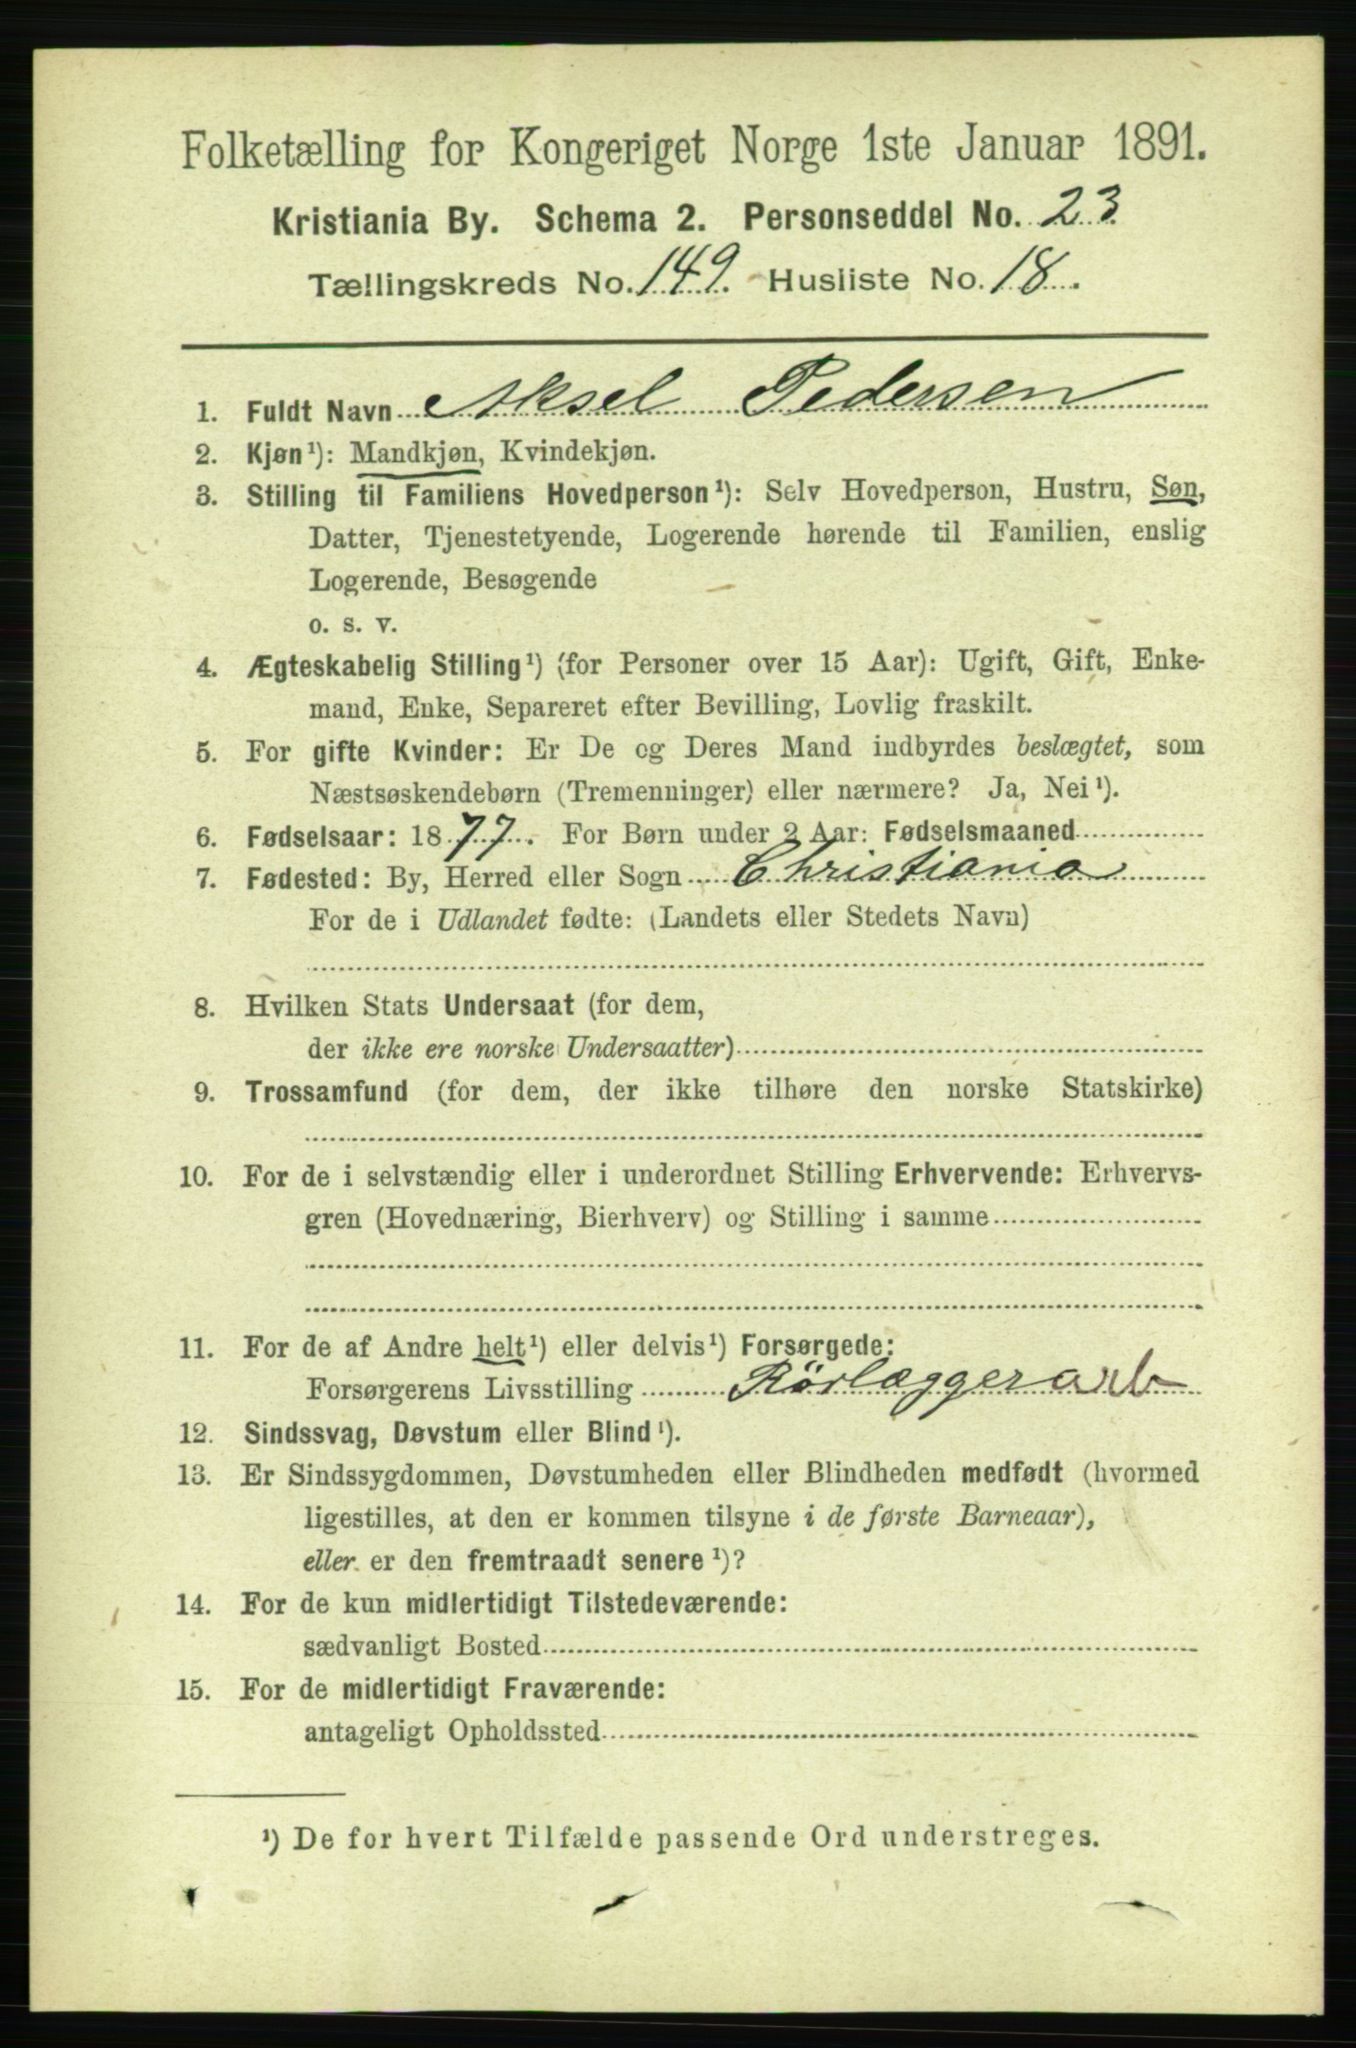 Folketælling for Kongeriget Norge 1ste Januar 1891.
Kristiania By. Schema 2. Personseddel No. 23
Tællingskreds No. 149. Husliste No. 18.
1. Fuldt Navn Aksel Pedersen
2. Kjøn¹): Mandkjøn, Kvindekjøn.
3. Stilling til Familiens Hovedperson¹): Selv Hovedperson, Hustru, Søn,
Datter, Tjenestetyende, Logerende hørende til Familien, enslig
Logerende, Besøgende
o. s. v.
4. Ægteskabelig Stilling¹) (for Personer over 15 Aar): Ugift, Gift, Enke-
mand, Enke, Separeret efter Bevilling, Lovlig fraskilt.
5. For gifte Kvinder: Er De og Deres Mand indbyrdes beslægtet, som
Næstsøskendebørn (Tremenninger) eller nærmere? Ja, Nei¹).
6. Fødselsaar: 1877. For Børn under 2 Aar: Fødselsmaaned
7. Fødested: By, Herred eller Sogn Christiania
For de i Udlandet fødte: (Landets eller Stedets Navn)
8. Hvilken Stats Undersaat (for dem,
der ikke ere norske Undersaatter)
9. Trossamfund (for dem, der ikke tilhøre den norske Statskirke)
10. For de i selvstændig eller i underordnet Stilling Erhvervende: Erhvervs-
gren (Hovednæring, Bierhverv) og Stilling i samme
11. For de af Andre helt¹) eller delvis¹) Forsørgede:
Forsørgerens Livsstilling Rörlæggerarb
12. Sindssvag, Døvstum eller Blind¹).
13. Er Sindssygdommen, Døvstumheden eller Blindheden medfødt (hvormed
ligestilles, at den er kommen tilsyne i de første Barneaar),
eller er den fremtraadt senere¹)?
14. For de kun midlertidigt Tilstedeværende:
sædvanligt Bosted
15. For de midlertidigt Fraværende:
antageligt Opholdssted
¹) De for hvert Tilfælde passende Ord understreges.